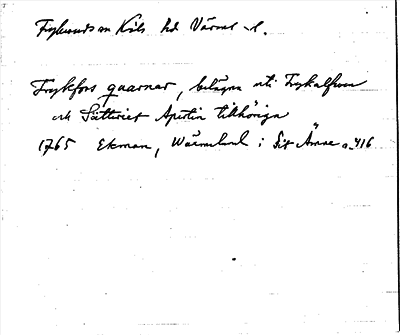 Frykerud sn Kils hd Värml. l.
Frykfors quarnar, belägna uti Frykelfven
och Sätteriet Apertin tillhöriga
1765 Ekman, Wärmeland i Sit Ämne s. 416